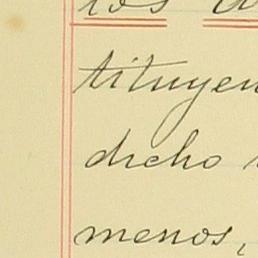 los
tituyen
dicho
menos,